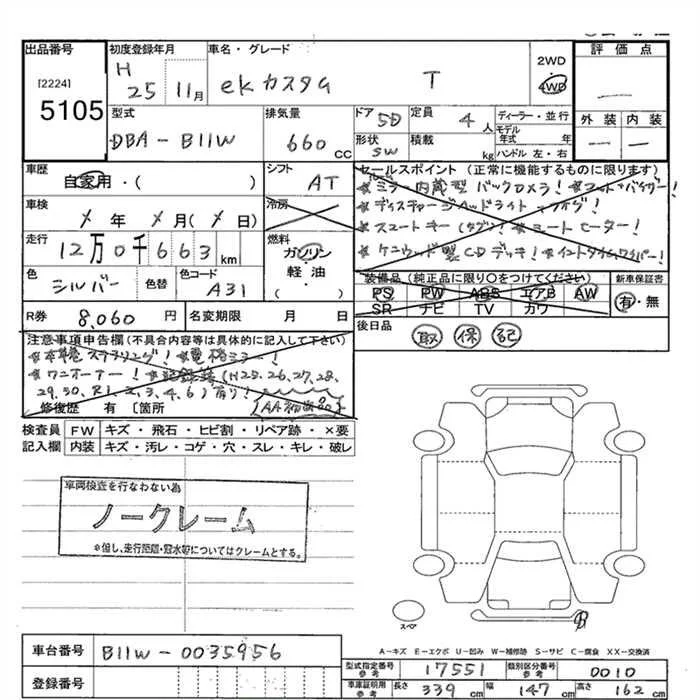 出品番号 初度登録年月 車名・グレード 2WD 評価点
[2224] H 25 11月 ekカスタム T 4WD
5105 外装 内装
型式 排気量 ドア 5D 定員 4人 ディーラー・並行
DBA-B11W 660cc 形状 SW 積載 kg モデル年式 年
ハンドル 左・右
車歴 シフト セールスポイント (正常に機能するものに限ります)
自家用・( ) AT ★ミラー内蔵型バックカメラ!
車検 年 月( 日) 冷房 ★ディスチャージヘッドライト
★スマートキー ★シートヒーター!
走行 12万0千663km 燃料 ★ケンウッド製CDデッキ!
ガソリン
軽油・( )
色 シルバー 色替 色コード A31 装備品(純正品に限り○をつけてください) 新車保証書
PS PW ABS エアB AW 有・無
SR ナビ TV カワ
R券 8,060円 名変期限 月 日 後日品 取 保 記
注意事項申告欄(不具合内容等は具体的に記入して下さい)
★本革ステアリング! ★電格ミラー!
★ワンオーナー! ★記録簿(H25.26.27.28.
29.30.R1.2.3.4.6)有り!
修復歴 有 [箇所
検査員 FW キズ・飛石・ヒビ割・リペア跡・×要
記入欄 内装 キズ・汚レ・コゲ・穴・スレ・キレ・破レ
車両検査を行なわない為
ノークレーム
※但し、走行距離・冠水等についてはクレームとする。
スペア
A-キズ E-エクボ U-凹み W-補修跡 S-サビ C-腐食 XX-交換済
車台番号 B11W-0035956 型式指定番号 参考 17551 類別区分番号 参考 0010
登録番号 車庫証明用 参考 長さ 339cm 幅 147cm 高さ 162cm